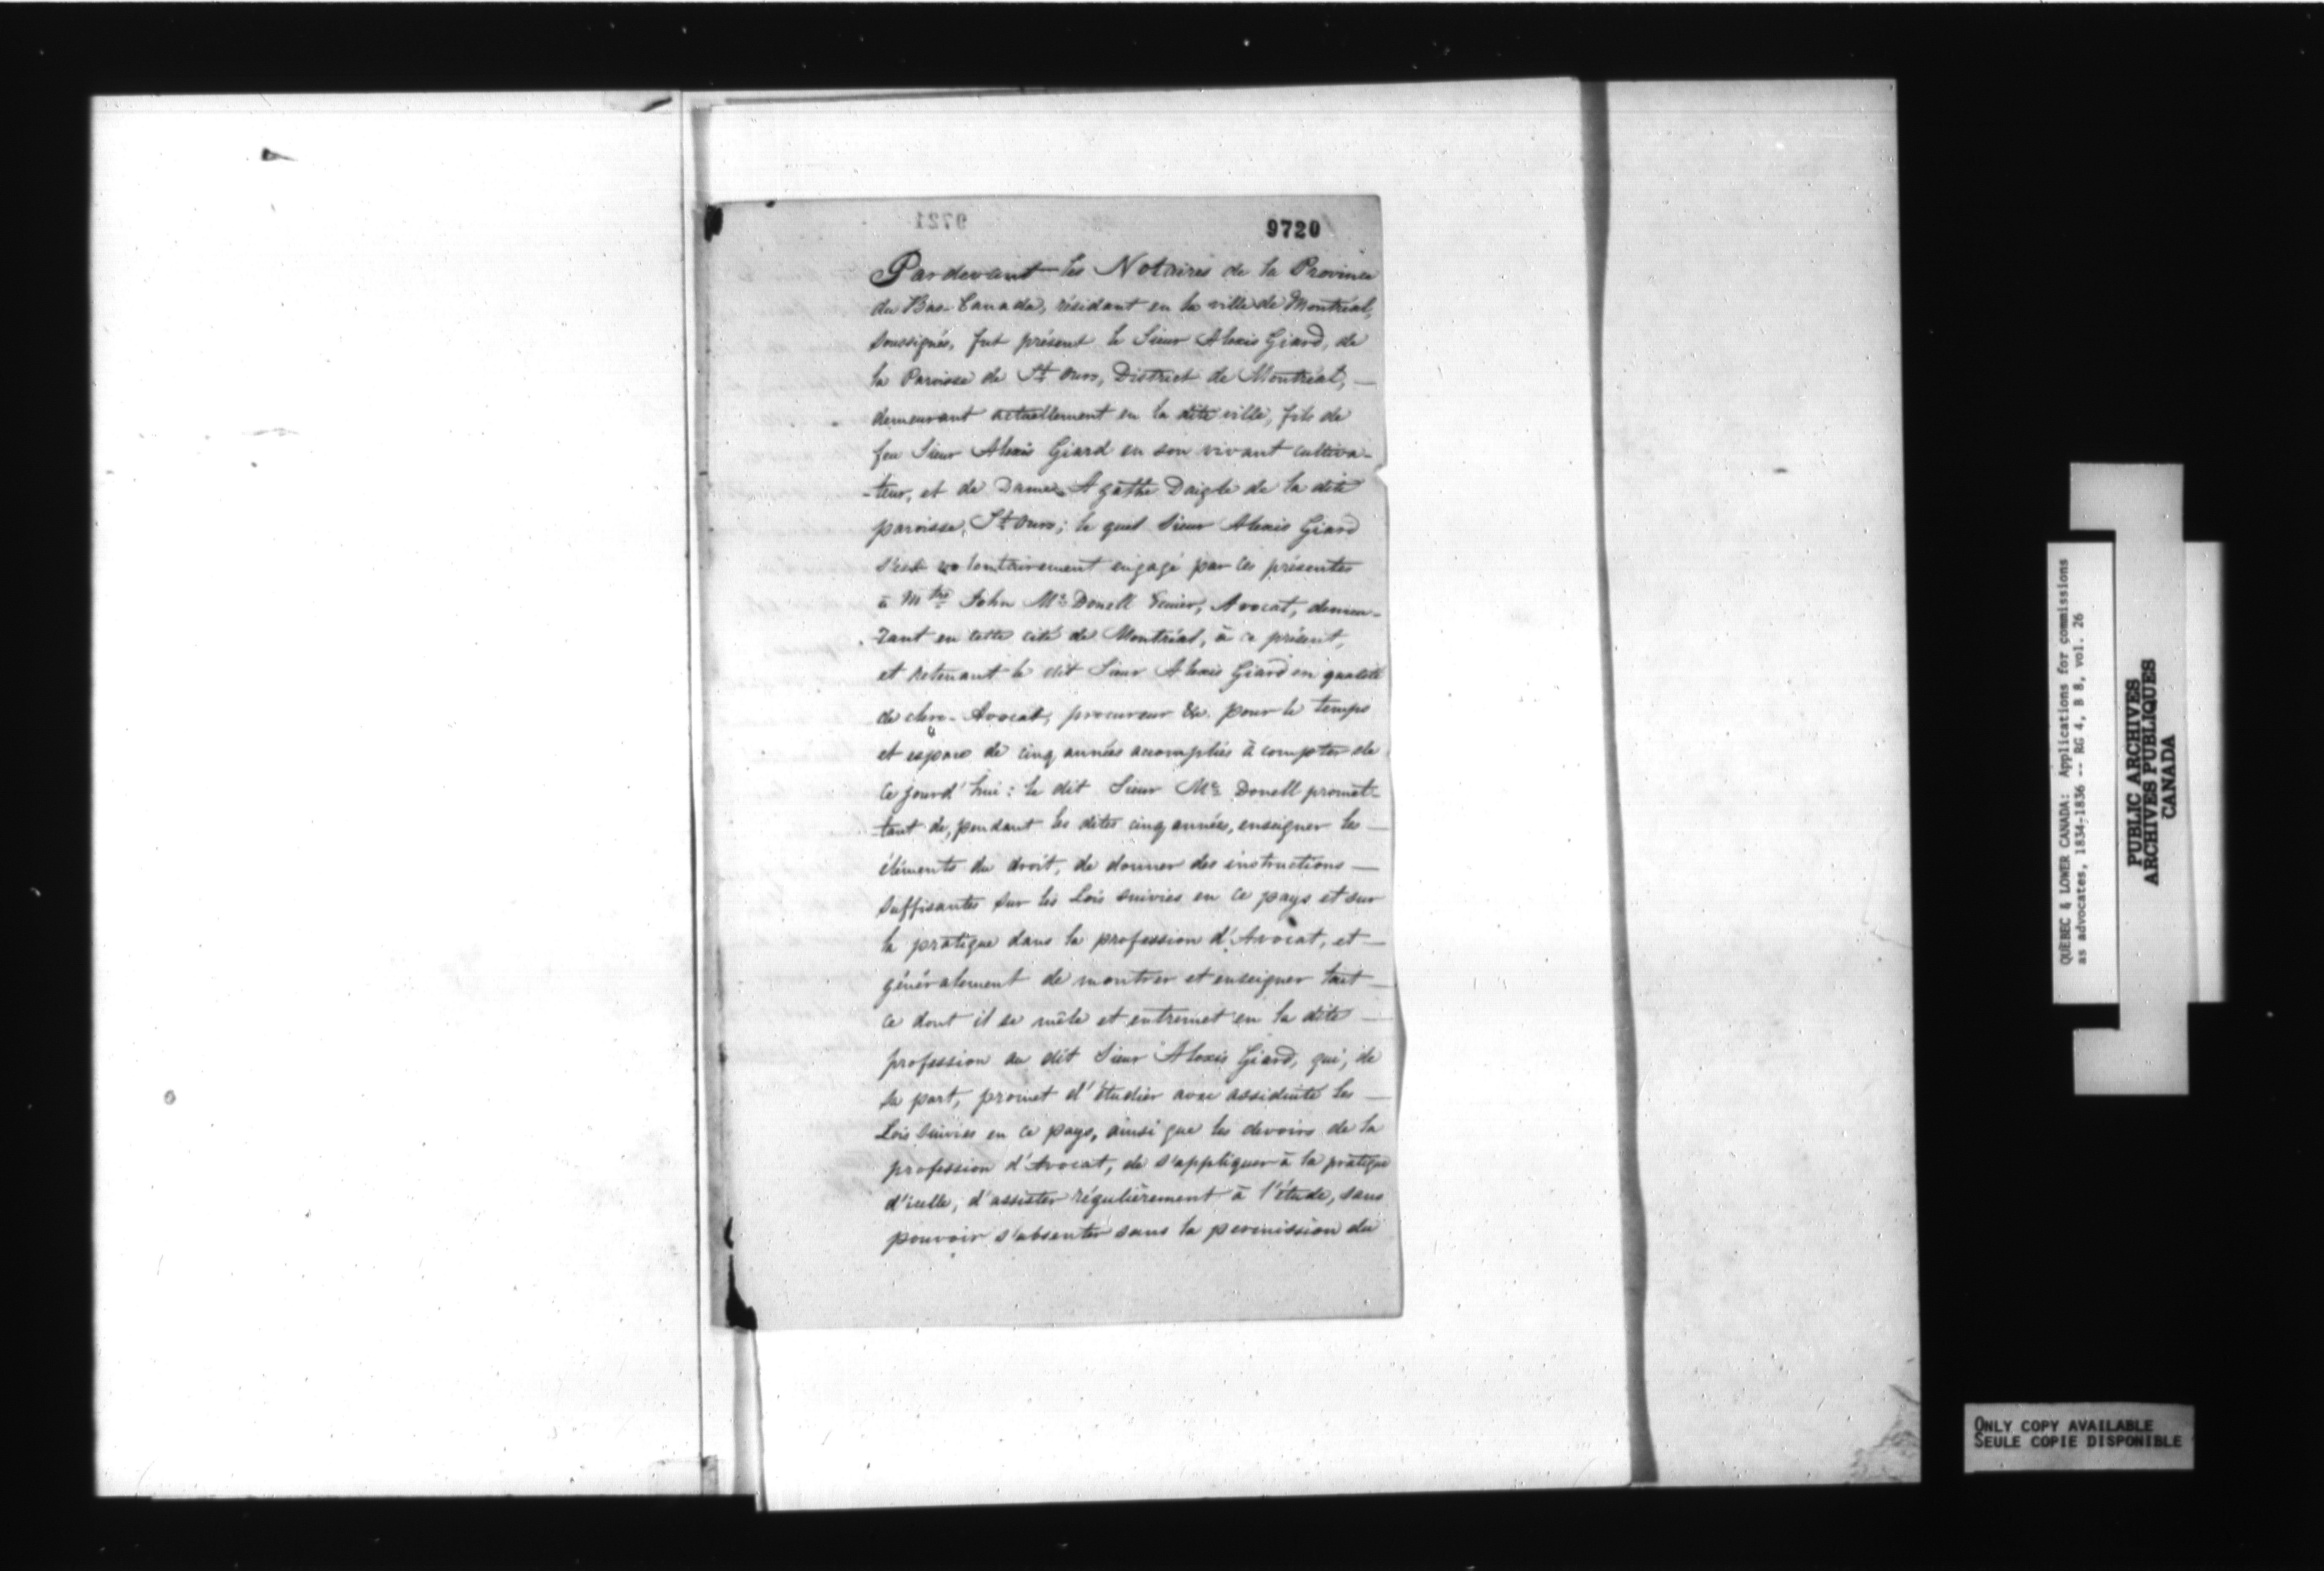 9720
Pardevant les Notaires de la Province
du Bas-Canada, résidant en la ville de Montréal,
soussignés, fut présent le Sieur Alexis Giard, de
la Paroisse de St Ours, District de Montréal, —
demeurant actuellement en la dite ville, fils de
feu Sieur Alexis Giard en son vivant cultiva-
-teur, et de Dame Agathe Daigle de la dite
paroisse, St Ours; le quel Sieur Alexis Giard
s'est volontairement engagé par ces présentes
à Mtre John Mc Donell Avocat, demeu-
-rant en cette cité de Montréal, à ce présent,
et retenant le dit Sieur Alexis Giard en qualité
de clerc-Avocat, procureur &c. pour le temps
et espace de cinq années accomplies à compter de
ce jourd'hui : le dit Sieur Mc Donell promet-
tant de, pendant les dites cinq années, enseigner les —
éléments du droit, de donner des instructions —
suffisantes sur les Lois suivies en ce pays et sur
la pratique dans la profession d'Avocat, et —
généralement de montrer et enseigner tout —
ce dont il se mêle et entremet en la dite —
profession au dit Sieur Alexis Giard, qui, de
sa part, promet d'étudier avec assiduité les —
Lois suivies en ce pays, ainsi que les devoirs de la
profession d'Avocat, de s'appliquer à la pratique
d'icelle, d'assister régulièrement à l'étude, sans
pouvoir s'absenter sans la permission du
QUEBEC & LOWER CANADA: Applications for commissions
as advocates, 1834-1836 -- RG 4, B 8, vol. 26
PUBLIC ARCHIVES
ARCHIVES PUBLIQUES
CANADA
ONLY COPY AVAILABLE
SEULE COPIE DISPONIBLE